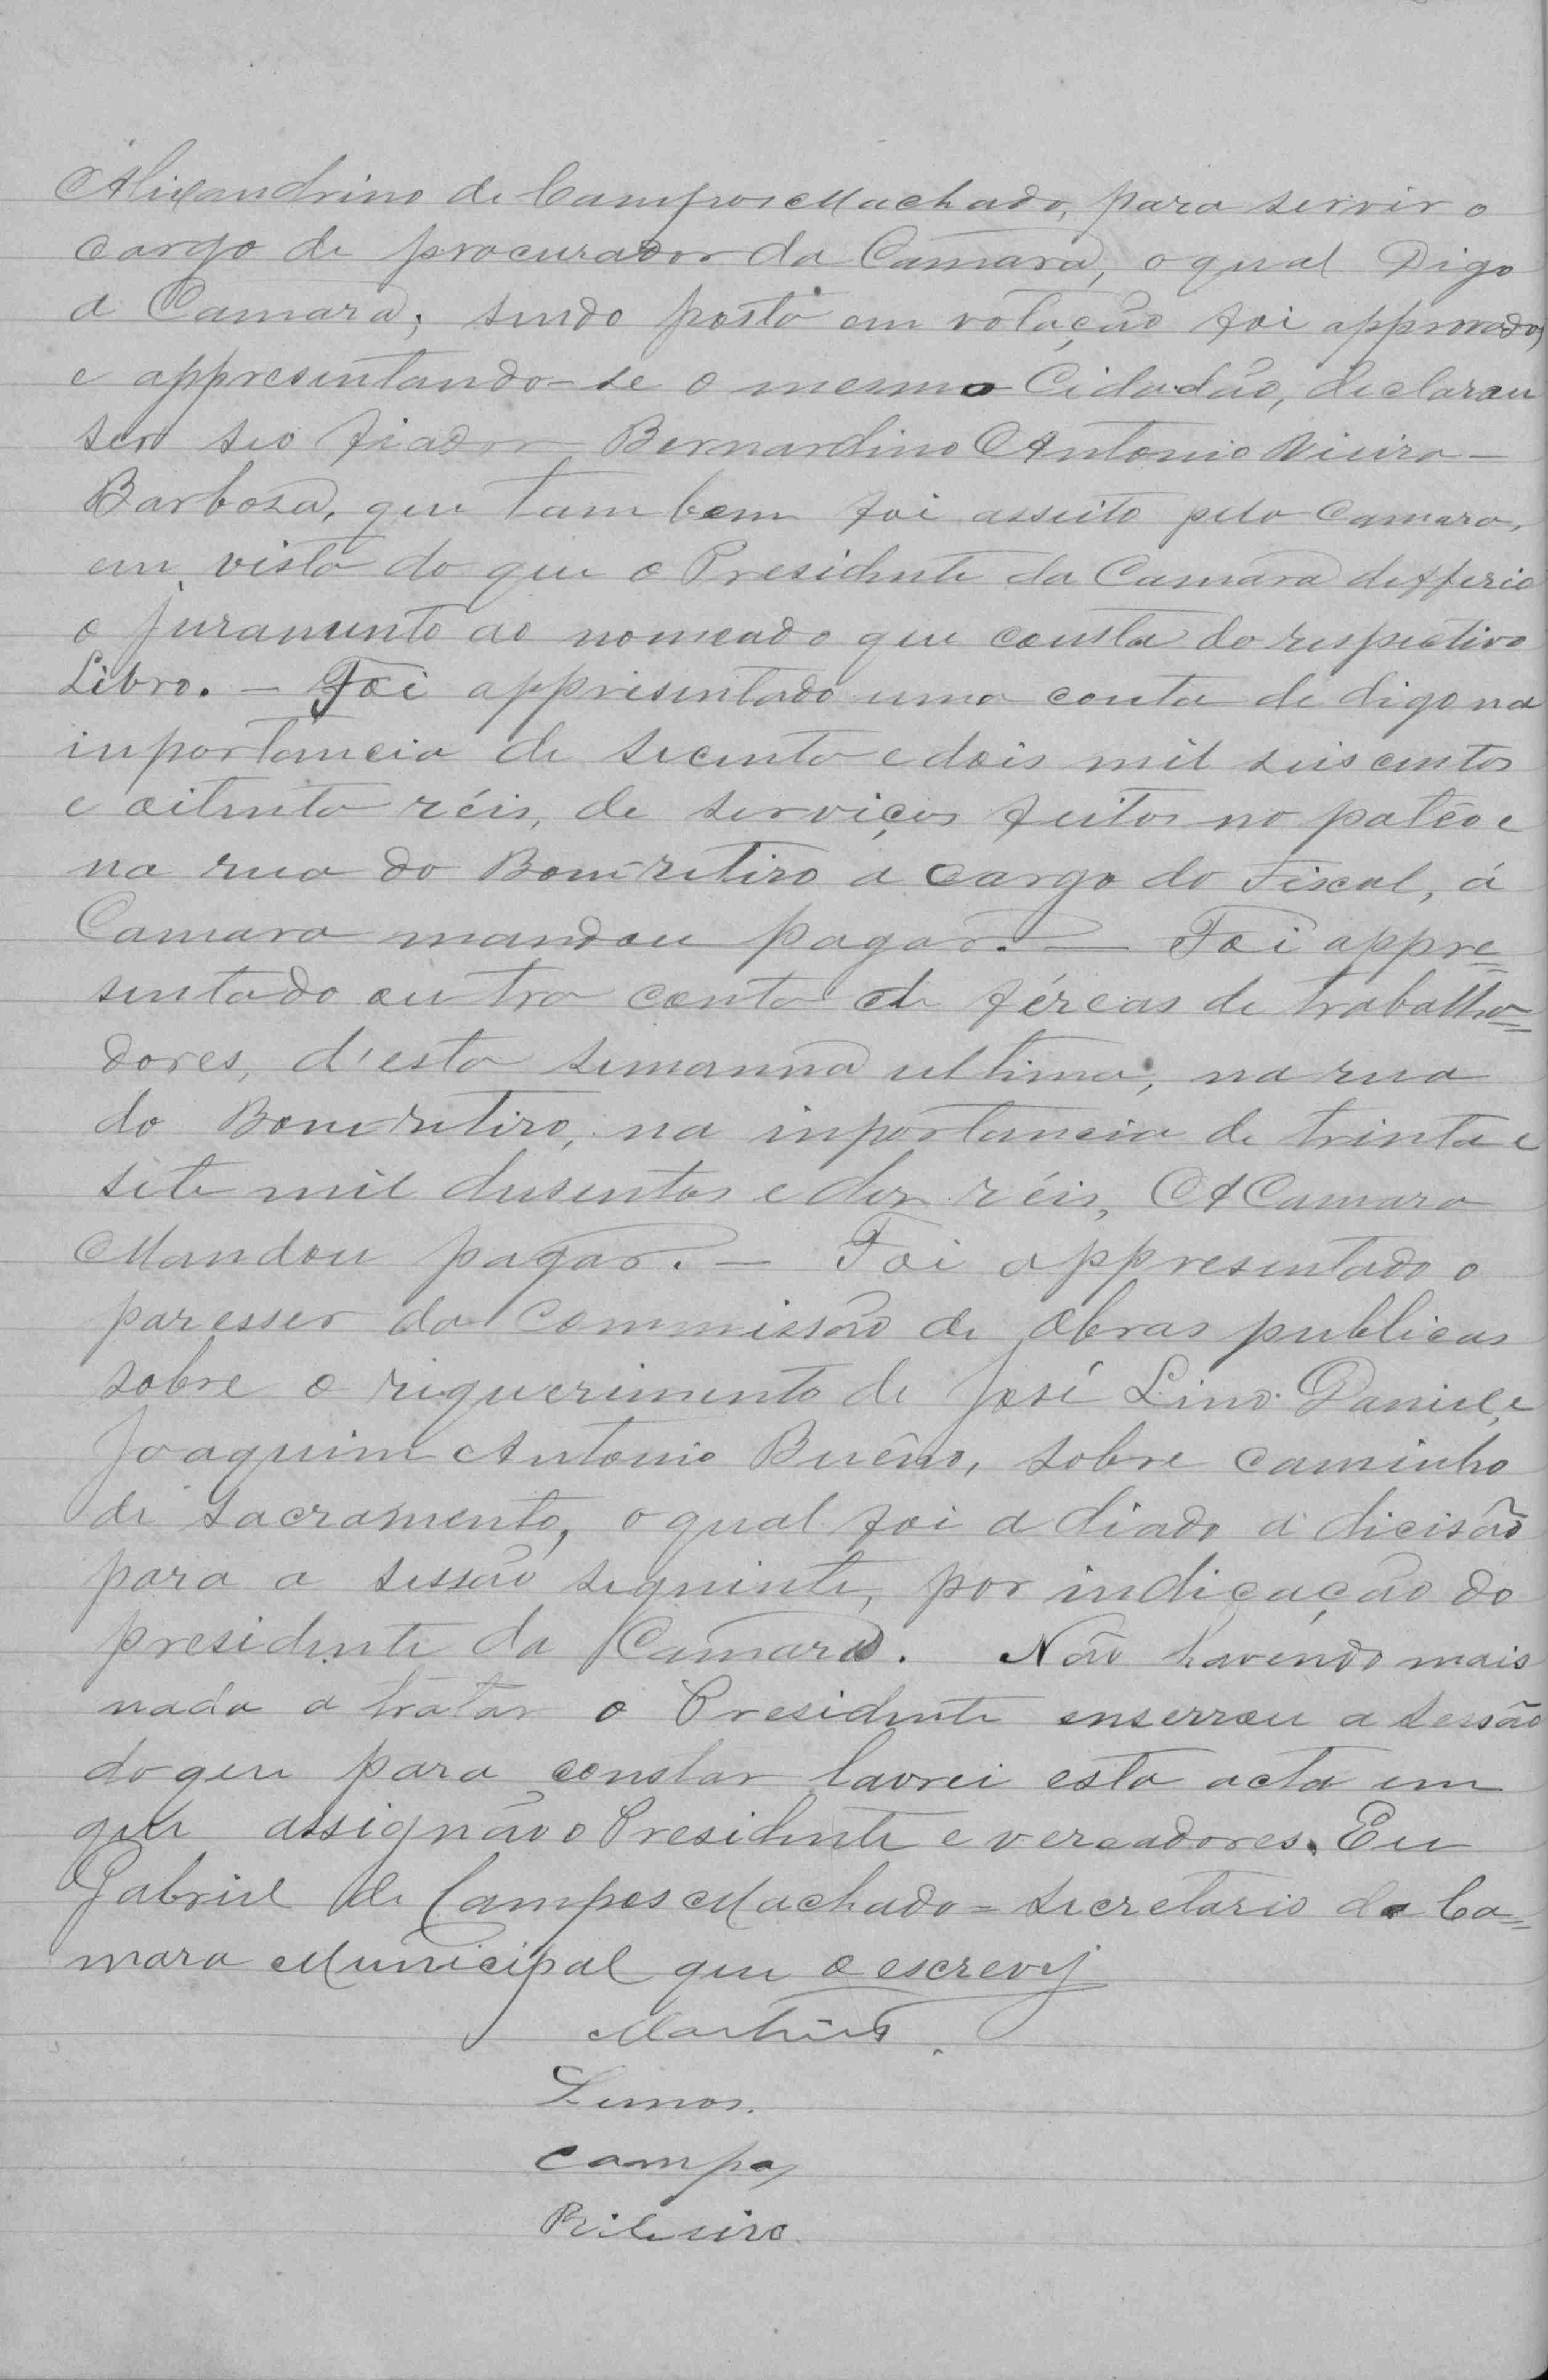 Alixandrino de Campos Machado, para servir o
cargo de procurador da Camara, o qual Digo
a Camara; sendo posto em votação foi approvado,
e appresentando-se o mesmo Cidadão, declarou
ser seo fiador Bernardino Antonio Vieira
Barboza, que tam bem foi asseito pela Camara,
em vista do que o Presidente da Camara defferio
o juramento ao nomeado que consta do respectivo
Libro. — Foi appresentado uma conta de digo na
inportancia de secenta e dois mil seis centos
e oitenta réis, de serviços feitos no patéo e
na rua do Bom-retiro a cargo do Fiscal, á
Camara mandou pagar. — Foi appre=
sentado outra conta de féreas de trabalha=
dores, d'esta semanna ultima, na rua
do Bom-retiro, na inportancia de trinta e
sete mil dusentos e des réis, A Camara
Mandou pagar. — Foi appresentado o
paresser da Commissão de obras publicas
sobre o riquerimento de José Lino Daniel, e
Joaquim Antonio Buêno, sobre caminho
de sacramento, o qual foi a diado a dicisão
para a sessão seguinte, por indicação do
presidente da Camara. Não havendo mais
nada a tratar o Presidente enserrou a sessão
do que para constar lavrei esta acta em
que assignão o Presidente e vereadores. Eu
Gabriel de Campos Machado = secretario da Ca=
mara Municipal que o escrevy
Martins.
Lemos.
Campos
Ribeiro.